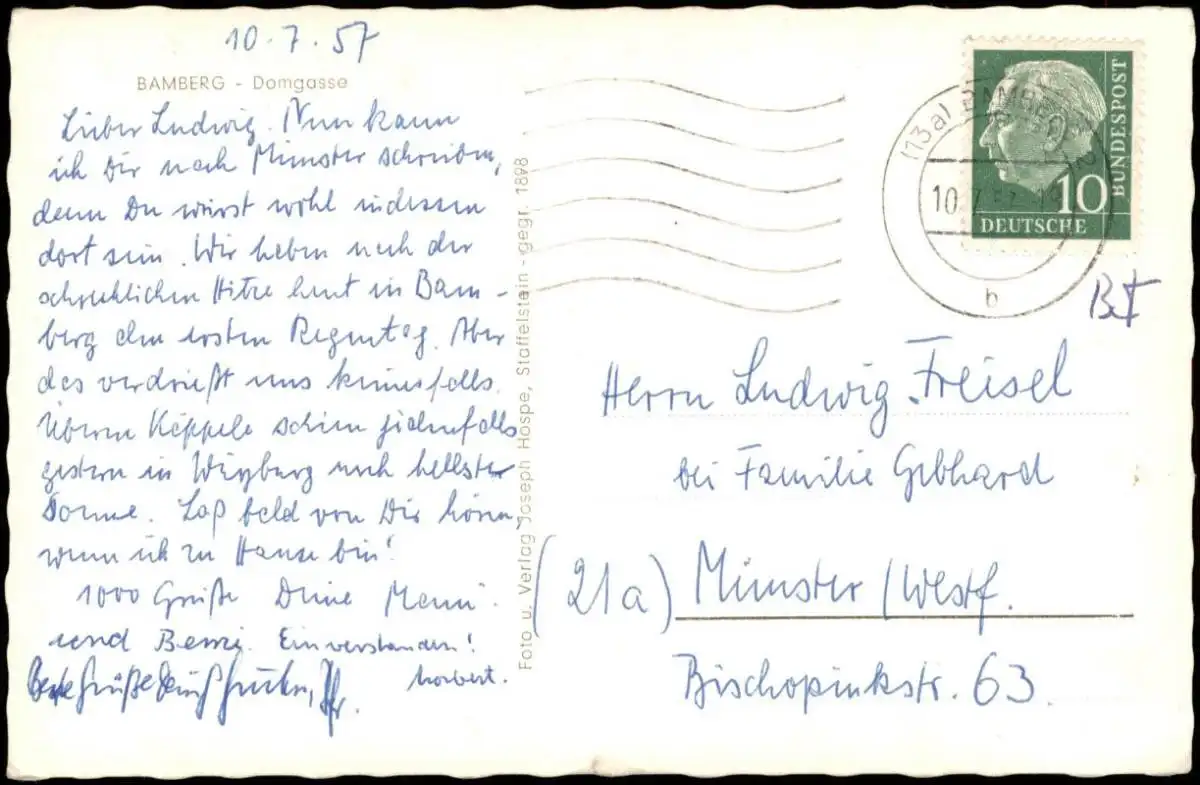 10.7.57
BAMBERG - Domgasse
Lieber Ludwig. Nun kann
ich Dir nach Münster schreiben,
denn Du wirst wohl indessen
dort sein. Wir haben nach der
schrecklichen Hitze heut in Bam-
berg den ersten Regentag. Aber
das verdrießt uns keinesfalls.
Überm Käppele schien jedenfalls
gestern in Würzburg noch hellste
Sonne. Laß bald von Dir hören,
wenn ich zu Hause bin!
1000 Grüße Deine
und Einverstanden!
Norbert.
Foto u. Verlag Joseph Hospe, Staffelstein - gegr. 1898
(13a) BAMBERG 2
10.7.57
b
DEUTSCHE
BUNDESPOST
10
Herrn Ludwig Freisel
bei Familie Gebhard
(21a) Münster/Westf.
Bischopinkstr. 63.